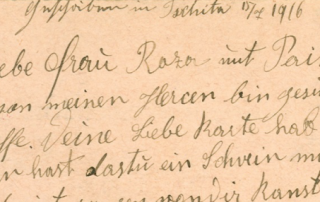 Geschriben in Tschita 15/I 1916
iebe frau Roza mit Pai
von meinen Hercen bin gesu
ffe. Deine Liebe Karte hab
n hast dastu ein Schwein m
von dir Kanst